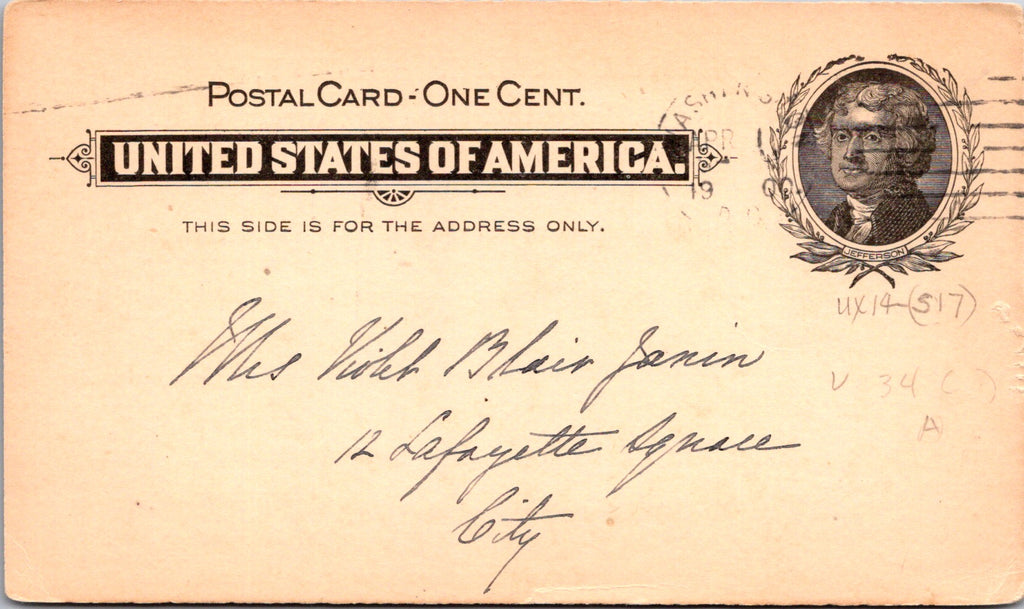 POSTAL CARD - ONE CENT.
UNITED STATES OF AMERICA.
THIS SIDE IS FOR THE ADDRESS ONLY.
JEFFERSON
UX14-(S17)
Mrs Violet Blair Janin
V 34 ( )
12 Lafayette Square
A
City